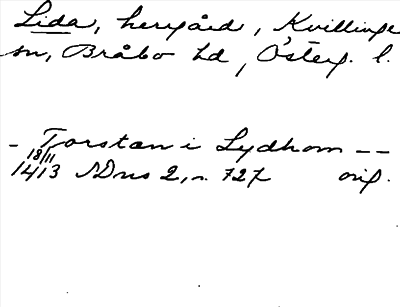 Lida, hergård, Kvillinge
sn, Bråbo hd, Österg. l.
- Torstan i Lydhom --
18/11
1413 SDns 2, n. 727 orig.